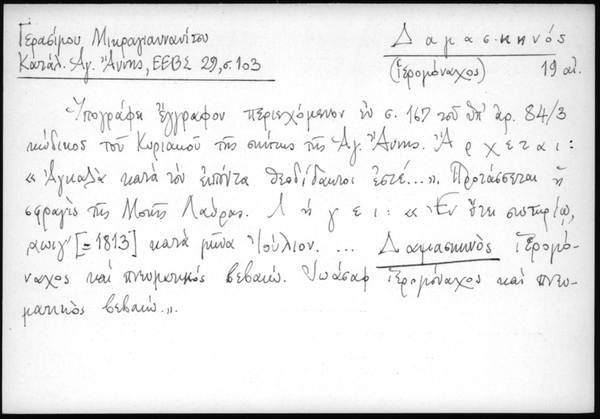 Γερασίμου Μικραγιαννανίτου
Κατάλ. Ἁγ. Ἄννης, ΕΕΒΣ 29, σ. 103
Δαμασκηνός
(ἱερομόναχος) 19 αἰ.
Ὑπογράφει ἔγγραφον περιεχόμενον ἐν σ. 167 τοῦ ὑπ' ἀρ. 84/3
κώδικος τοῦ Κυριακοῦ τῆς σκήτης τῆς Ἁγ. Ἄννης. Ἄρχεται:
« κατὰ τὸν εἰπόντα θεοδίδακτοι ἐστέ...». Προτάσσεται ἡ
σφραγὶς τῆς Μονῆς Λαύρας. Λήγει: «Ἐν ἔτει σωτηρίῳ,
αωιγʹ [= 1813] κατὰ μῆνα Ἰούλιον. ... Δαμασκηνὸς ἱερομό-
ναχος καὶ πνευματικὸς βεβαιῶ. Ἰωάσαφ ἱερομόναχος καὶ πνευ-
ματικὸς βεβαιῶ.».